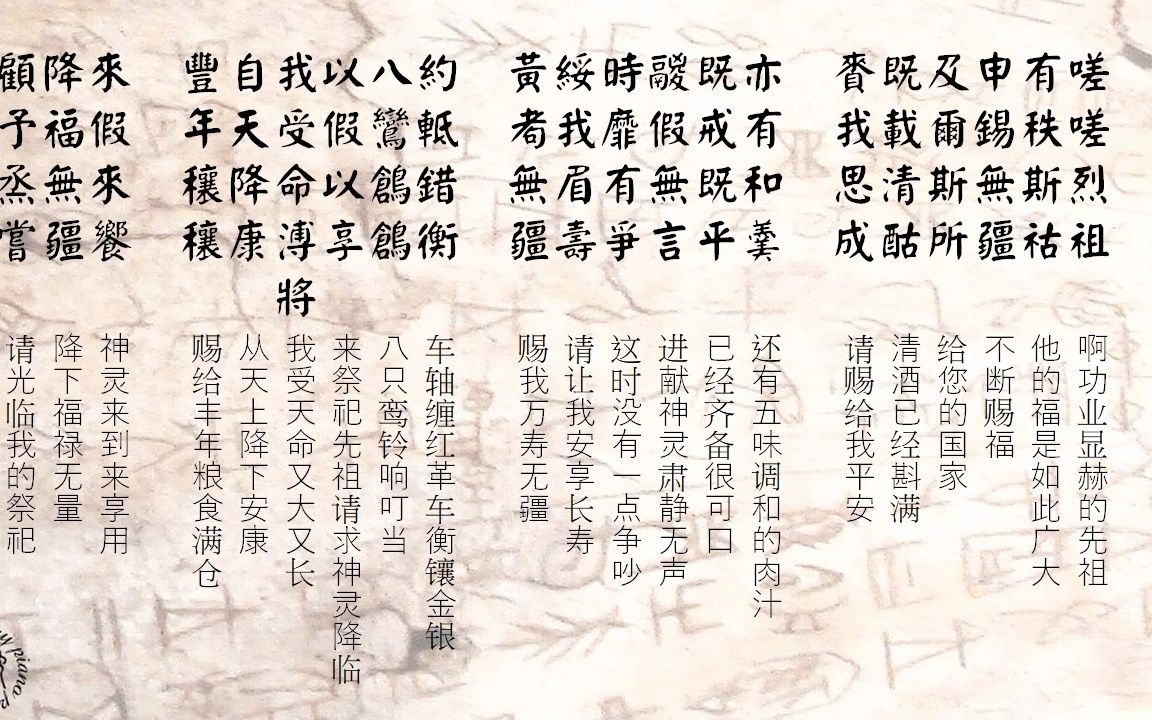 嗟嗟烈祖
有秩斯祜
申錫無疆
及爾斯所
既載清酤
賚我思成
亦有和羹
既戒既平
鬷假無言
時靡有爭
綏我眉壽
黃者無疆
約軝錯衡
八鸞鶬鶬
以假以享
我受命溥將
自天降康
豐年穰穰
來假來饗
降福無疆
顧予烝嘗
啊功业显赫的先祖
他的福是如此广大
不断赐福
给您的国家
清酒已经斟满
请赐给我平安
还有五味调和的肉汁
已经齐备很可口
进献神灵肃静无声
这时没有一点争吵
请让我安享长寿
赐我万寿无疆
车轴缠红革车衡镶金银
八只鸾铃响叮当
来祭祀先祖请求神灵降临
我受天命又大又长
从天上降下安康
赐给丰年粮食满仓
神灵来到来享用
降下福禄无量
请光临我的祭祀
piano